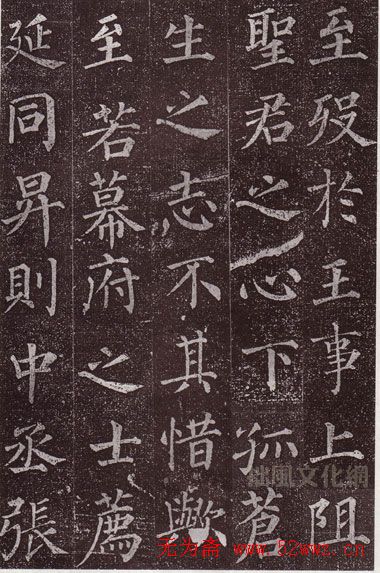 至歿於王事上阻
聖君之心下孤蒼
生之志不其惜歟
至若幕府之士薦
延同昇則中丞張
拙風文化網
无为斋 www.52wwz.cn